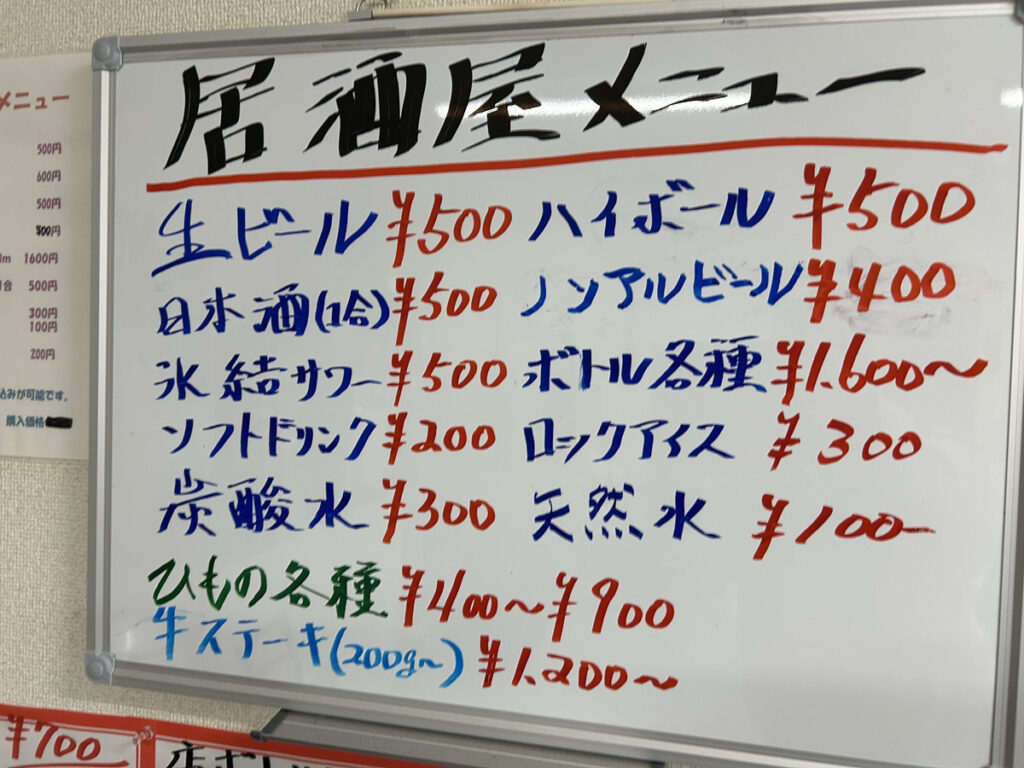 居酒屋メニュー
生ビール ¥500 ハイボール ¥500
日本酒(1合) ¥500 ノンアルビール ¥400
氷結サワー ¥500 ボトル各種 ¥1.600〜
ソフトドリンク ¥200 ロックアイス ¥300
炭酸水 ¥300 天然水 ¥100-
ひもの各種 ¥400〜¥900
牛ステーキ(200g〜) ¥1.200〜
メニュー
500円
600円
500円
円
1600円
500円
300円
100円
200円
込みが可能です。
購入価格
¥700